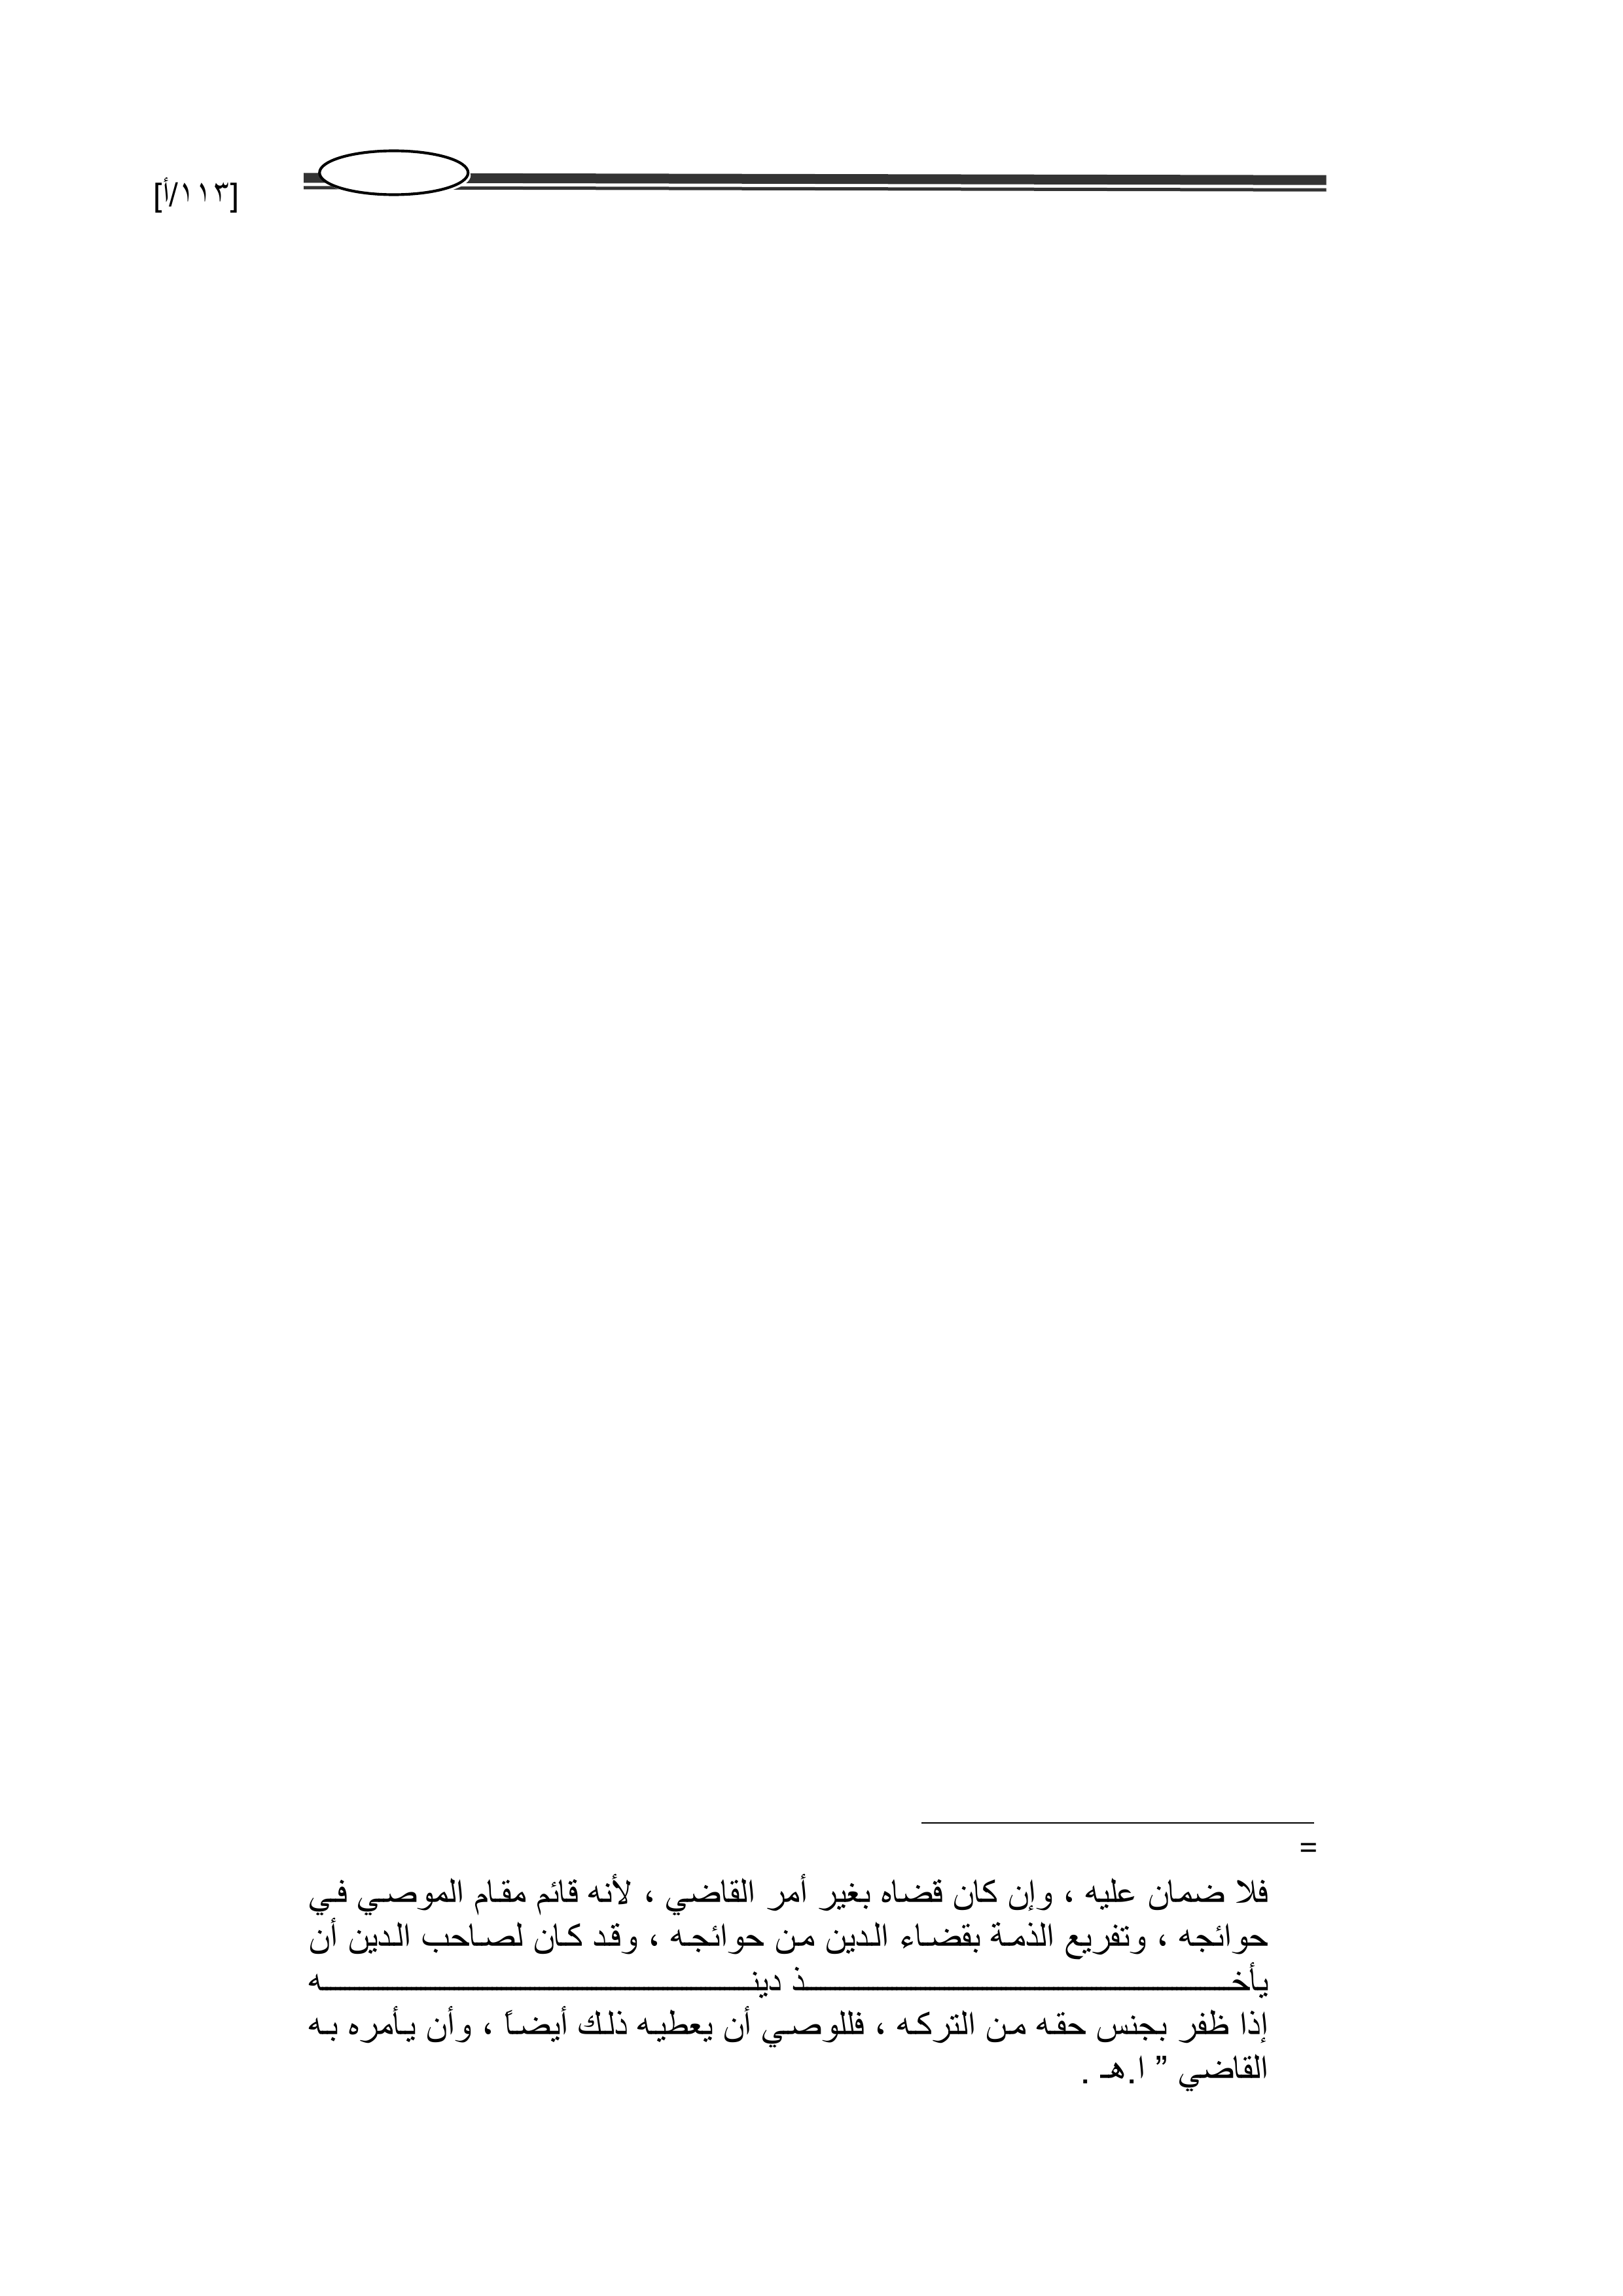 [١١٣/أ]
=
فلا ضمان عليه ، وإن كان قضاه بغير أمر القاضي ، لأنه قائم مقام الموصي في
حوائجه ، وتفريع الذمة بقضاء الدين من حوائجه ، وقد كان لصاحب الدين أن
يأخذ دينه
إذا ظفر بجنس حقه من التركه ، فللوصي أن يعطيه ذلك أيضاً ، وأن يأمره به
القاضي ” ا.هـ .